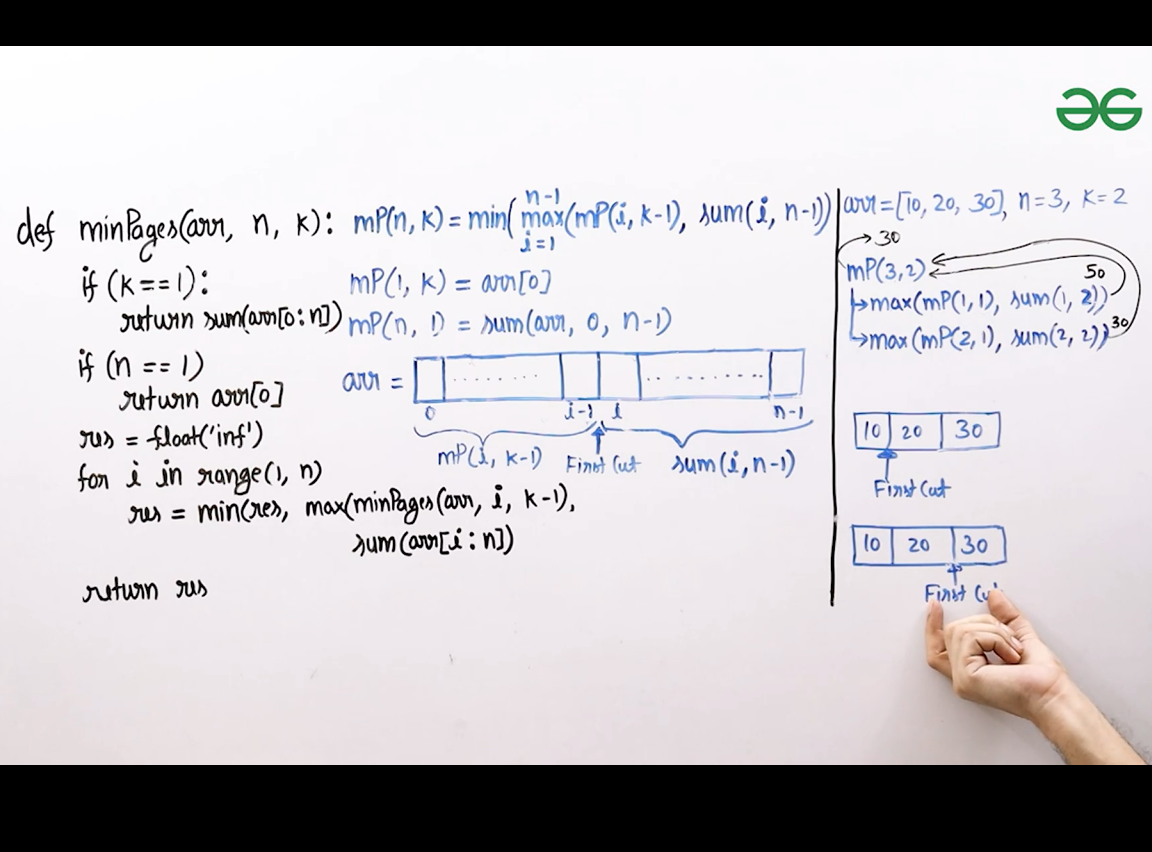 def minPages(arr, n, k):
if (k==1):
return sum(arr[0:n])
if (n == 1)
return arr[0]
res = float('inf')
for i in range(1, n)
res = min(res, max(minPages(arr, i, k-1),
sum(arr[i:n])
return res
n-1
mP(n, k) = min( max(mP(i, k-1), sum(i, n-1))
i=1
mP(1, k) = arr[0]
mP(n, 1) = sum(arr, 0, n-1)
arr = ........ .........
0 i-1 i n-1
mP(i, k-1) First Cut sum(i, n-1)
GG
arr=[10, 20, 30], n=3, k=2
→30
mP(3,2)
50
↳max(mP(1,1), sum(1, 2))
↳max(mP(2,1), sum(2, 2)) 30
10 20 30
First Cut
10 20 30
First Cut